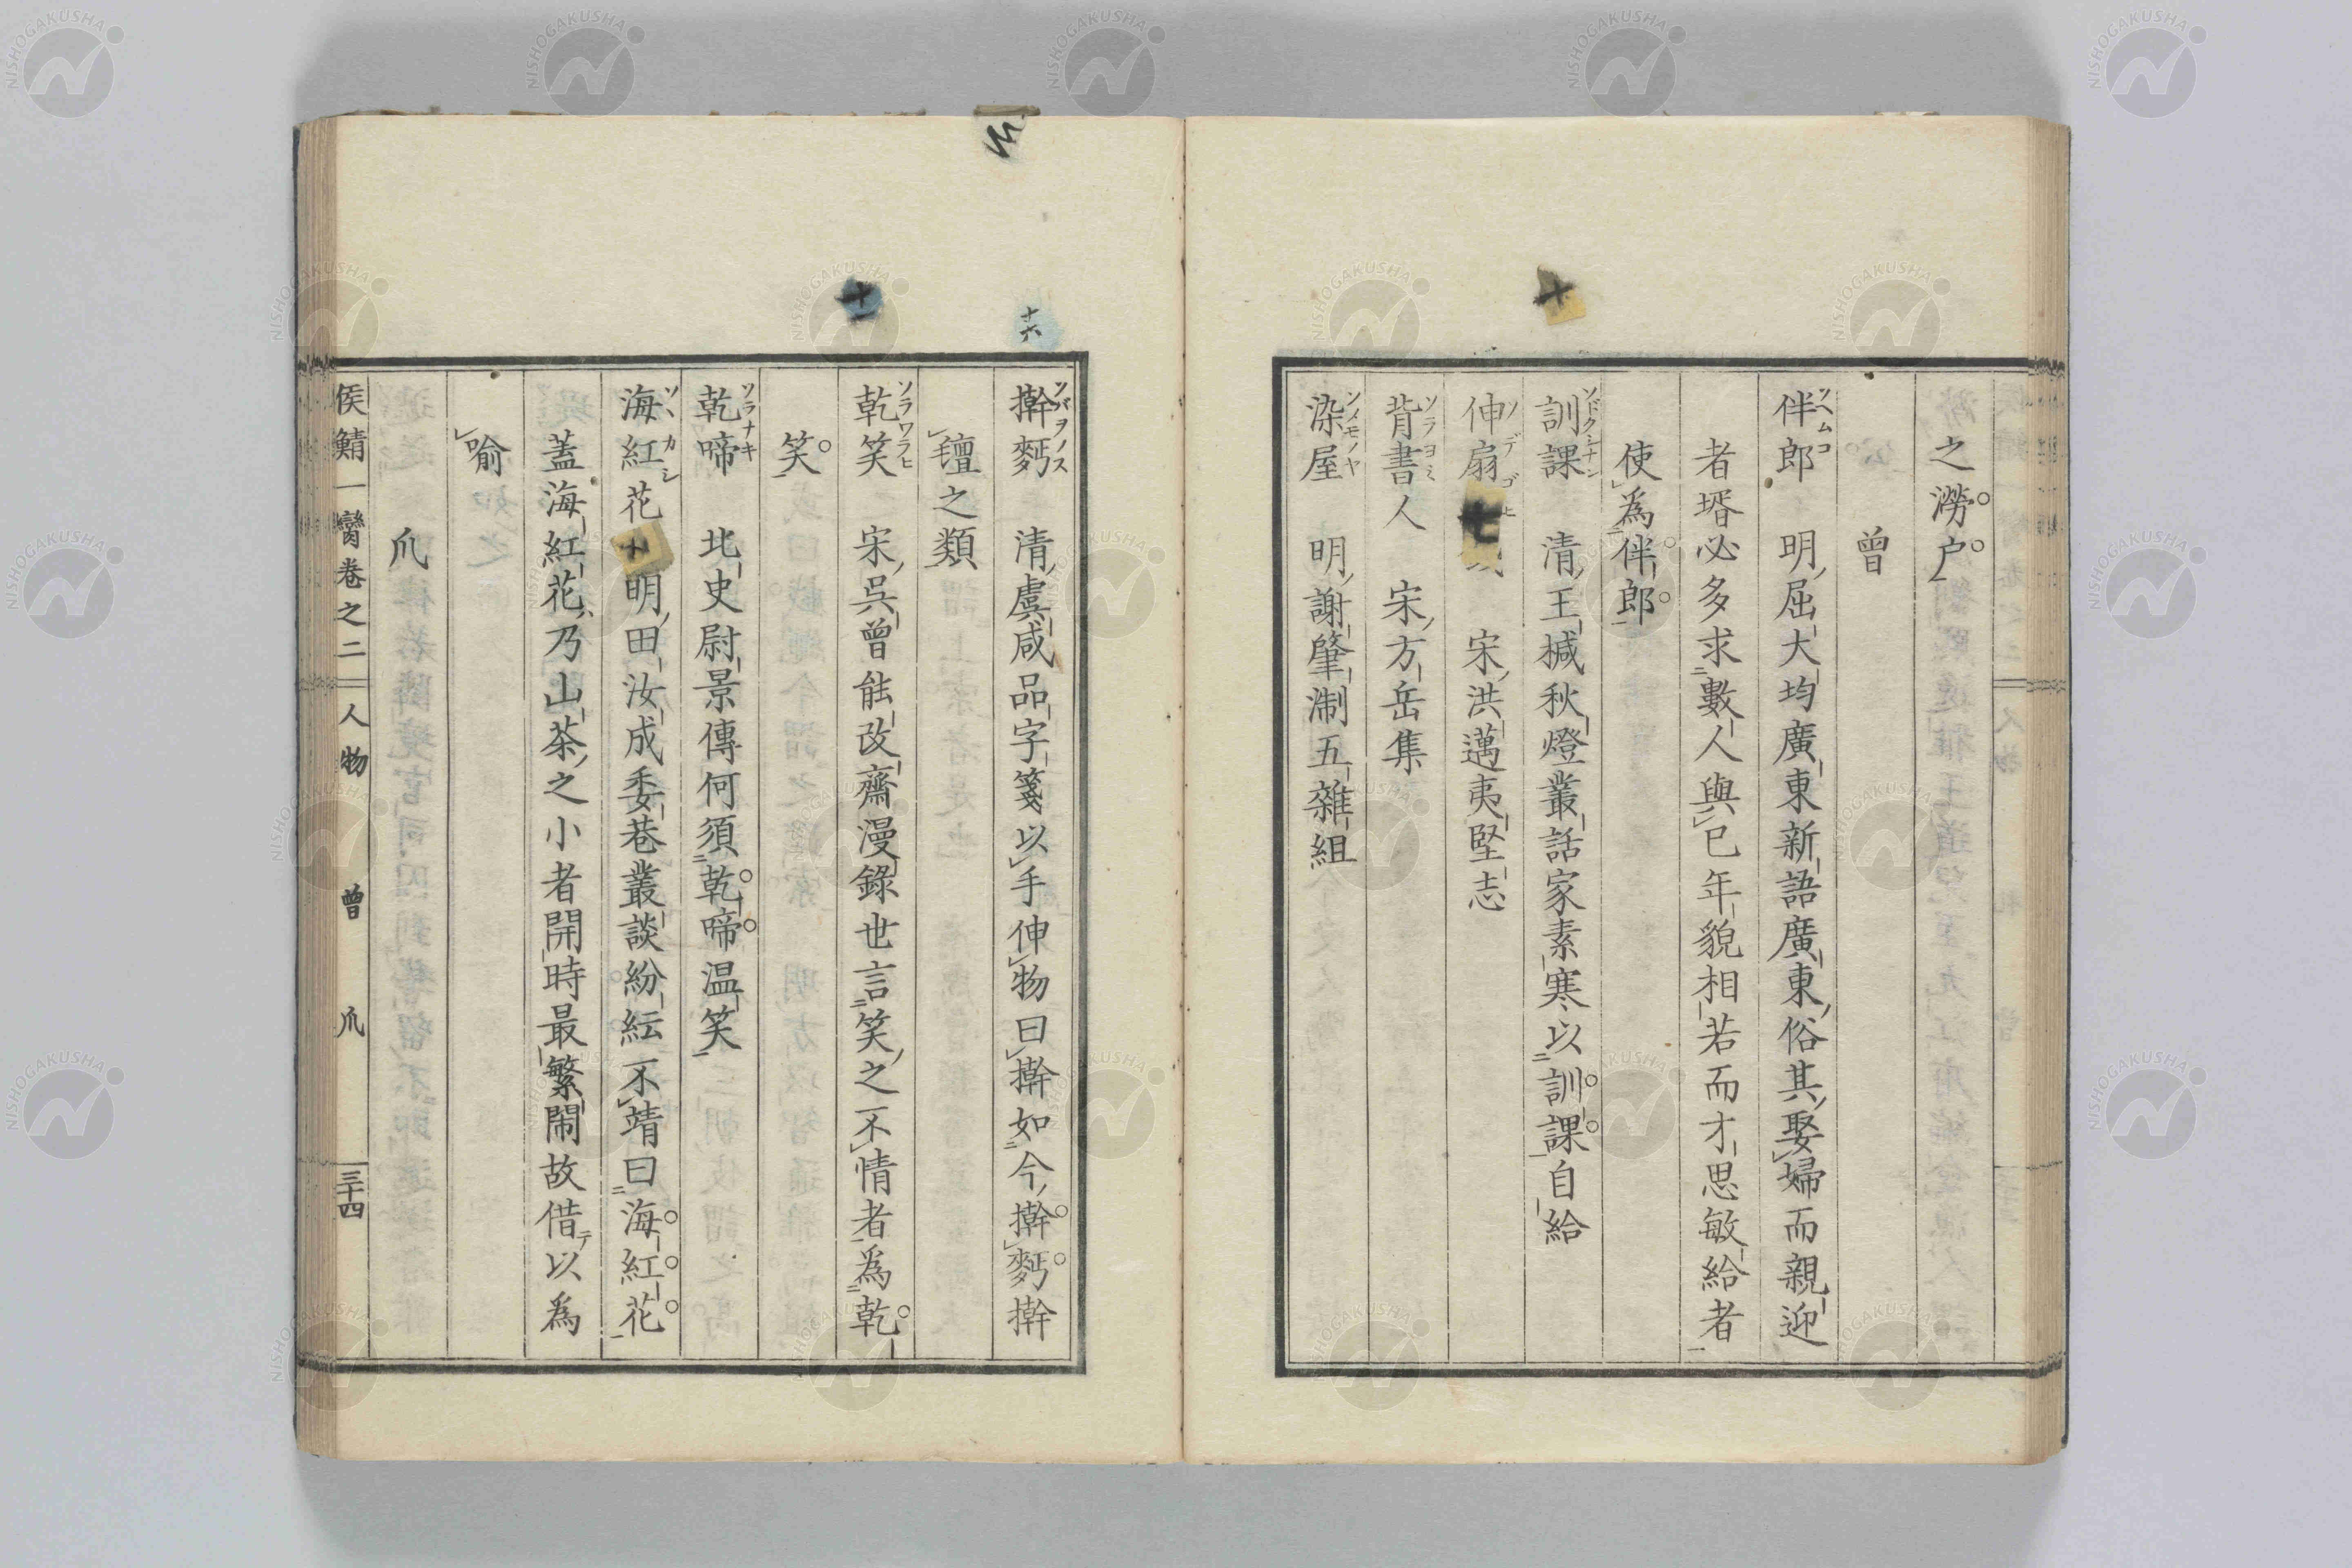 之澇户
曾
伴郎 明屈大均廣東新語廣東俗其娶婦而親迎
者壻必多求數人與已年貌相若而才思敏給者
使爲伴郎
訓課 清王椷秋燈叢話家素寒以訓課自給
伸扇 宋洪邁夷堅志
背書人 宋方岳集
染屋 明謝肇淛五雜組
十
十六
擀麪 清虞咸品字箋以手伸物曰擀如今擀麪擀
氊之類
十一
乾笑 宋吳曾能改齋漫錄世言笑之不情者爲乾
笑
乾啼 北史尉景傳何須乾啼温笑
海紅花 明田汝成委巷叢談紛紜不靖曰海紅花
蓋海紅花乃山茶之小者開時最繁鬧故借テ以爲
喻
爪
侯鯖一臠卷之二 人物 曾 爪 三十四
NISHOGAKUSHA